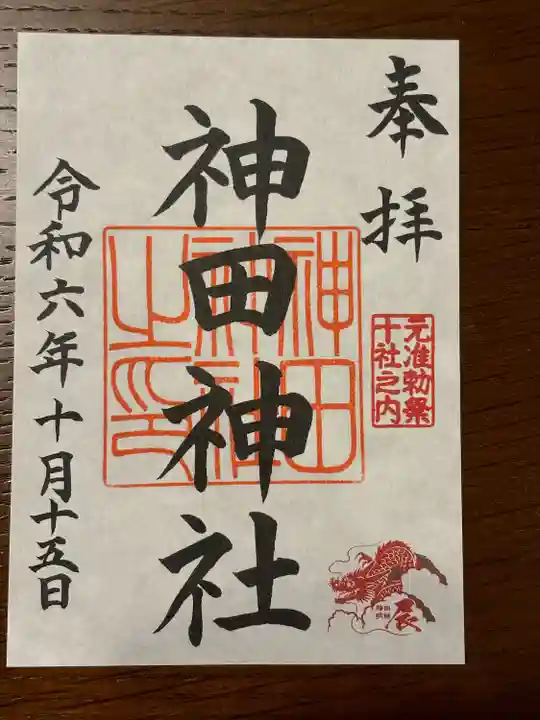 奉拝
元准勅祭
十社之内
神田神社
神田
神社
之印
令和六年十月十五日
辰